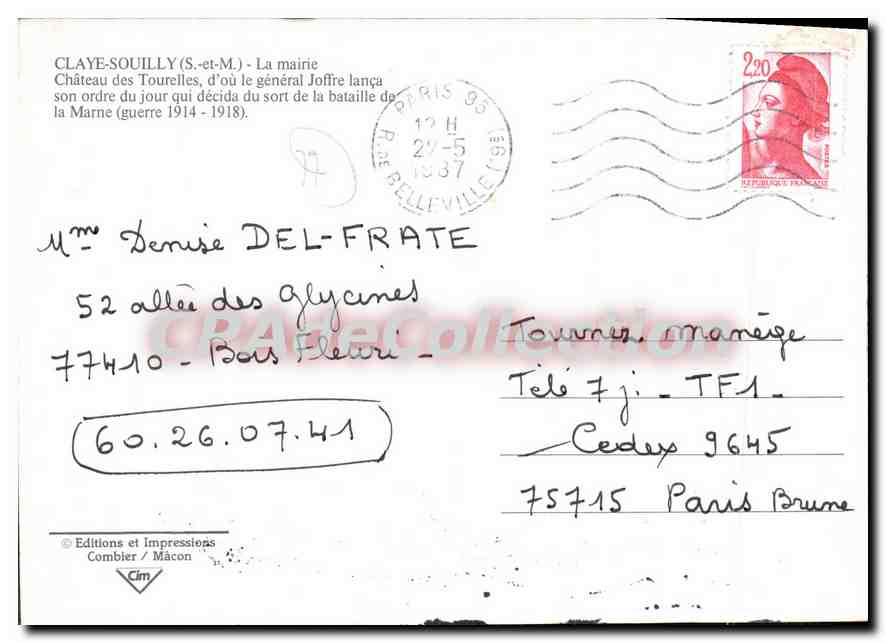 CLAYE-SOUILLY (S.-et-M.) - La mairie
Château des Tourelles, d'où le général Joffre lança
son ordre du jour qui décida du sort de la bataille de
la Marne (guerre 1914 - 1918).
PARIS 95
12 H
22-5
1987
R. DE BELLEVILLE (19e)
2,20
POSTES
REPUBLIQUE FRANÇAISE
77
Mme Denise DEL-FRATE
52 allée des Glycines
77410 - Bois Fleuri -
60.26.07.41
CPArteCollection
Tournez manège
Télé 7 j. - TF1 -
Cedex 9645
75715 Paris Brune
© Editions et Impressions
Combier / Mâcon
Cim